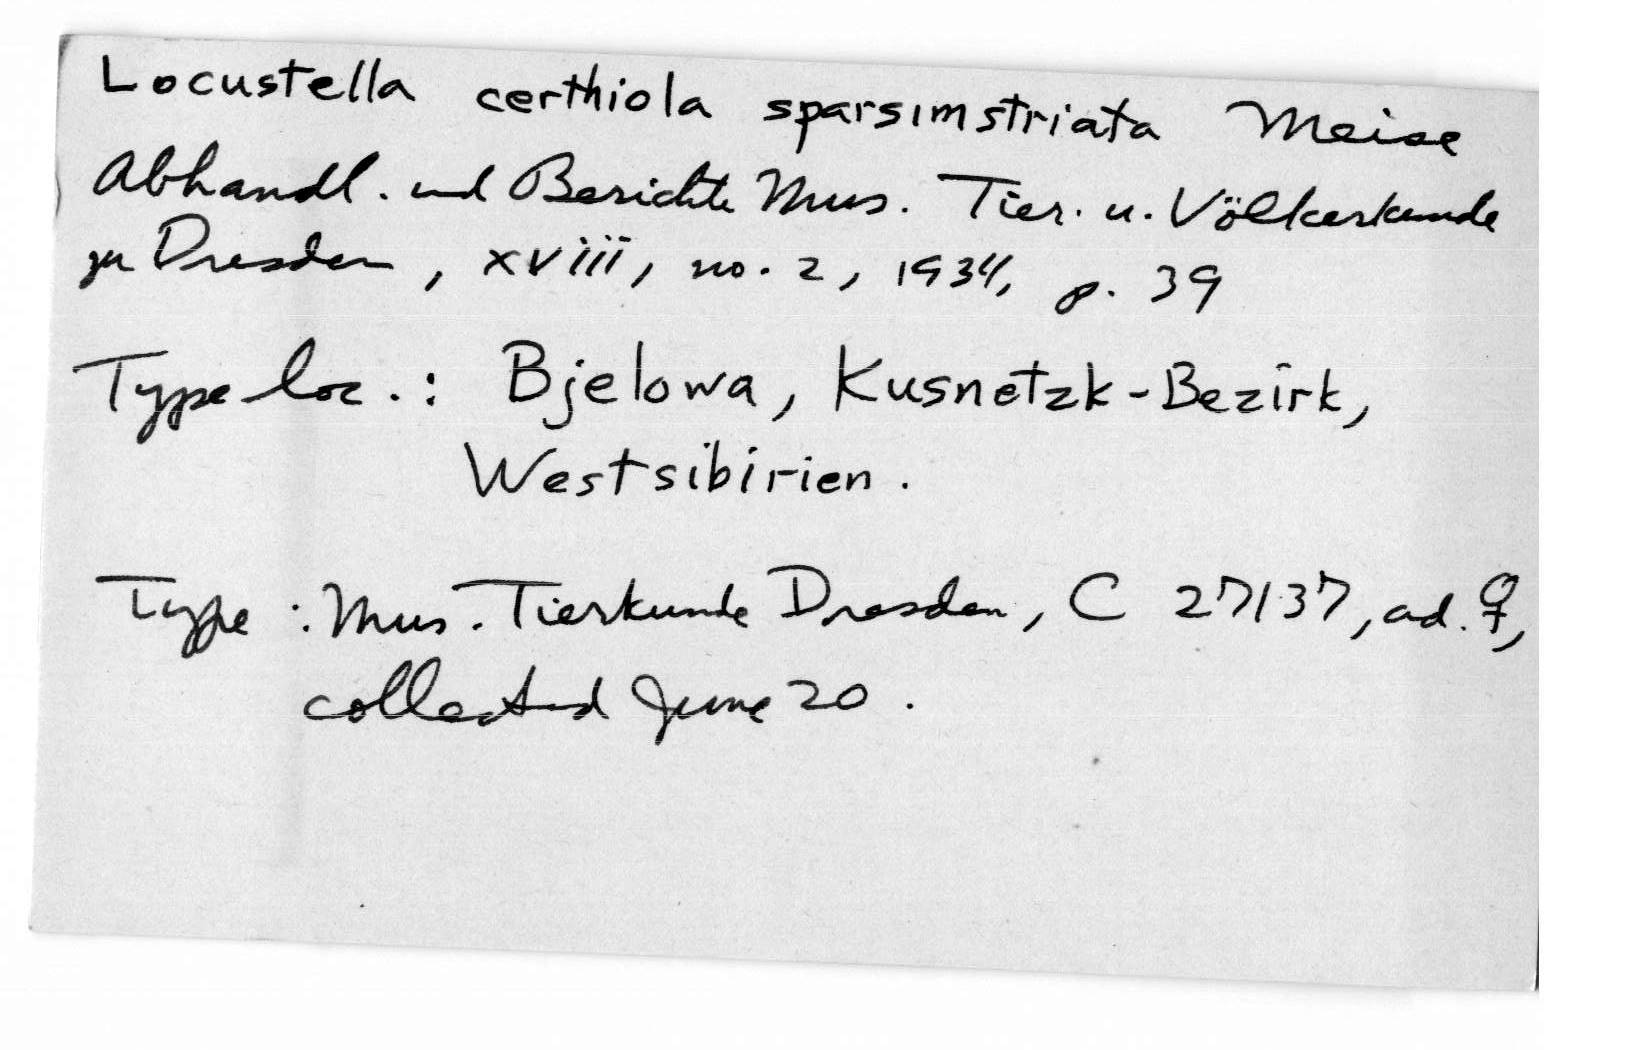 Locustella certhiola sparsimstriata Meise
Abhandl. und Berichte Mus. Tier. u. Völkerkunde
zu Dresden, xviii, no. 2, 1934, p. 39
Type loc.: Bjelowa, Kusnetzk-Bezirk,
Westsibirien.
Type: Mus. Tierkunde Dresden, C 27137, ad. ♀,
collected June 20.